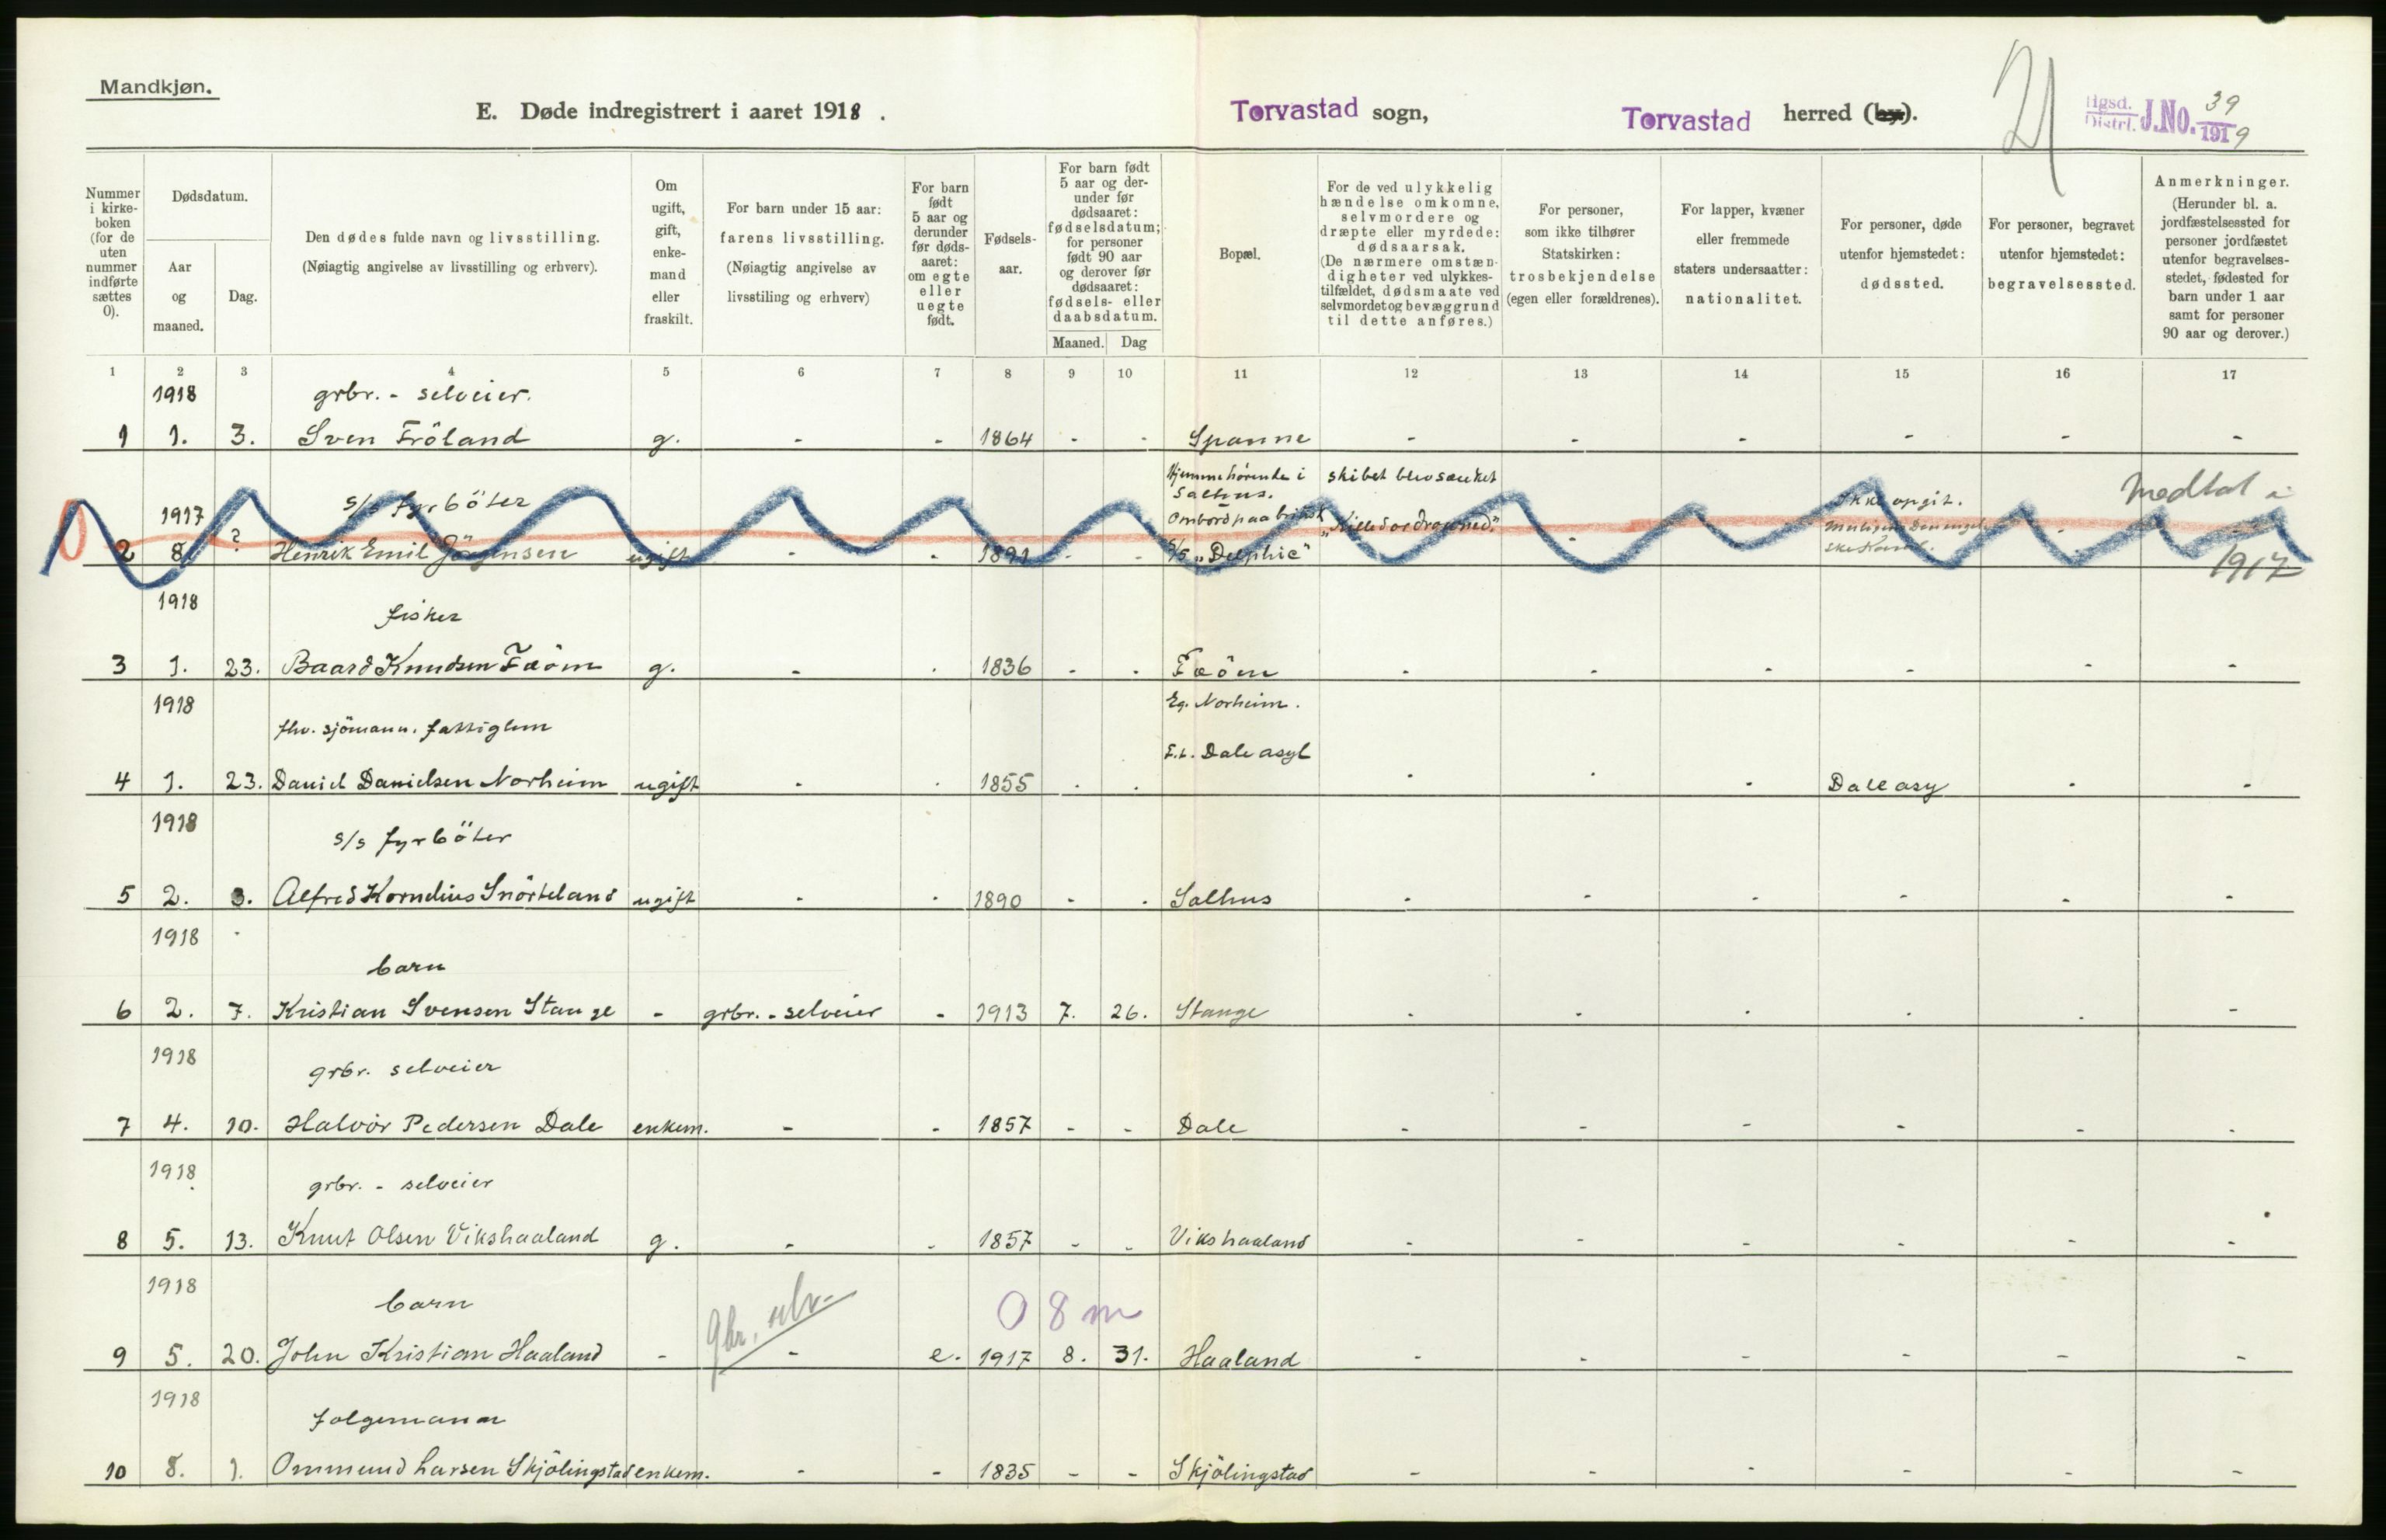 Mandkjøn.
E. Døde indregistrert i aaret 1918.
Torvastad sogn,
Torvastad herred (by).
21
J.No. 39
1919
Nummer i kirkeboken (for de uten nummer indførte sættes 0).
Dødsdatum.
Aar og maaned.
Dag.
Den dødes fulde navn og livsstilling.
(Nøiagtig angivelse av livsstilling og erhverv).
Om ugift, gift, enkemand eller fraskilt.
For barn under 15 aar: farens livsstilling.
(Nøiagtig angivelse av livsstiling og erhverv)
For barn født 5 aar og derunder før dødsaaret: om egte eller uegte født.
Fødselsaar.
For barn født 5 aar og derunder før dødsaaret: fødselsdatum; for personer født 90 aar og derover før dødsaaret: fødsels- eller daabsdatum.
Maaned. Dag
Bopæl.
For de ved ulykkelig hændelse omkomne, selvmordere og dræpte eller myrdede: dødsaarsak.
(De nærmere omstændigheter ved ulykkestilfældet, dødsmaate ved selvmordet og bevæggrund til dette anføres.)
For personer, som ikke tilhører Statskirken: trosbekjendelse (egen eller forældrenes).
For lapper, kvæner eller fremmede staters undersaatter: nationalitet.
For personer, døde utenfor hjemstedet: dødssted.
For personer, begravet utenfor hjemstedet: begravelsessted.
Anmerkninger.
(Herunder bl. a. jordfæstelsessted for personer jordfæstet utenfor begravelsesstedet, fødested for barn under 1 aar samt for personer 90 aar og derover.)
1 2 3 4 5 6 7 8 9 10 11 12 13 14 15 16 17
1918 grbr. - selveier.
1 1. 3. Sven Fröland g. - - 1864 - - Spanne - - - - - -
Hjemmehørende i skibet blev sænket
Salhus.
1917 s/s fyrböter Ombord paa britisk "Killed or drowned." Ikke opgit. Medtat i
0 2 8 ? Henrik Emil Jörgensen ugift - - 1891 - - S/S "Delphic" - - 1917
1918 fisker
3 1. 23. Baard Knudsen Feöen g. - - 1836 - - Feöen - - - - - -
1918 Eg. Norheim.
fhv. sjömann. fattiglem
E.t. Dale asyl
4 1. 23. Daniel Danielsen Norheim ugift - - 1855 - - - - - Dale asy - -
1918 s/s fyrböter
5 2. 3. Alfred Kornelius Snörteland ugift - - 1890 - - Salhus - - - - - -
1918 barn
6 2. 7. Kristian Svensen Stange - grbr. - selveier - 1913 7. 26. Stange - - - - - -
1918 grbr. selveier
7 4. 10. Halvor Pedersen Dale enkem. - - 1857 - - Dale - - - - - -
1918 grbr. - selveier
8 5. 13. Knut Olsen Vikshaaland g. - - 1857 - - Vikshaaland - - - - - -
1918 barn gbr. selv. 0 8 m
9 5. 20. John Kristian Haaland - - e. 1917 8. 31. Haaland - - - - - -
1918 folgemann
10 8. 1. Ommund Larsen Skjölingstad enkem. - - 1835 - - Skjölingstad - - - - - -